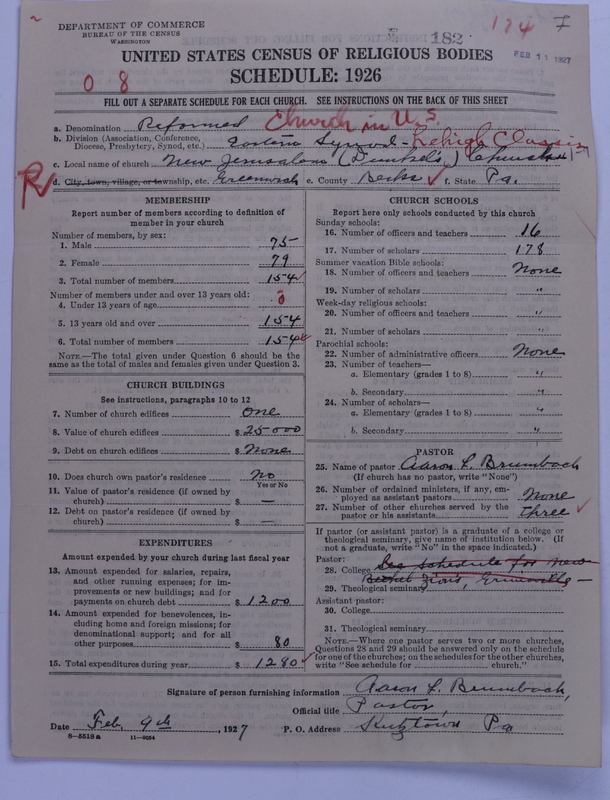 174
182
FEB 11 1927
DEPARTMENT OF COMMERCE
BUREAU OF THE CENSUS
WASHINGTON
UNITED STATES CENSUS OF RELIGIOUS BODIES
SCHEDULE: 1926
0 8
FILL OUT A SEPARATE SCHEDULE FOR EACH CHURCH. SEE INSTRUCTIONS ON THE BACK OF THIS SHEET
a. Denomination Reformed Church in U.S.
b. Division (Association, Conference, Diocese, Presbytery, Synod, etc.) Eastern Synod - Lehigh Classis
c. Local name of church New Jerusalem (Dunkel's) Church
R d. City, town, village, or township, etc. Greenwich e. County Berks f. State Pa.
MEMBERSHIP
Report number of members according to definition of
member in your church
Number of members, by sex:
1. Male 75
2. Female 79
3. Total number of members 154
Number of members under and over 13 years old:
4. Under 13 years of age 0
5. 13 years old and over 154
6. Total number of members 154
NOTE.—The total given under Question 6 should be the
same as the total of males and females given under Question 3.
CHURCH BUILDINGS
See instructions, paragraphs 10 to 12
7. Number of church edifices one
8. Value of church edifices $ 25000
9. Debt on church edifices $ None
10. Does church own pastor's residence No
Yes or No
11. Value of pastor's residence (if owned by
church) $ —
12. Debt on pastor's residence (if owned by
church) $ —
EXPENDITURES
Amount expended by your church during last fiscal year
13. Amount expended for salaries, repairs,
and other running expenses; for im-
provements or new buildings; and for
payments on church debt $ 1200
14. Amount expended for benevolences, in-
cluding home and foreign missions; for
denominational support; and for all
other purposes $ 80
15. Total expenditures during year $ 1280
CHURCH SCHOOLS
Report here only schools conducted by this church
Sunday schools:
16. Number of officers and teachers 16
17. Number of scholars 178
Summer vacation Bible schools:
18. Number of officers and teachers None
19. Number of scholars "
Week-day religious schools:
20. Number of officers and teachers "
21. Number of scholars "
Parochial schools:
22. Number of administrative officers None
23. Number of teachers—
a. Elementary (grades 1 to 8) "
b. Secondary "
24. Number of scholars—
a. Elementary (grades 1 to 8) "
b. Secondary "
PASTOR
25. Name of pastor Aaron L. Brumbach
(If church has no pastor, write "None")
26. Number of ordained ministers, if any, em-
ployed as assistant pastors None
27. Number of other churches served by the
pastor or his assistants Three
If pastor (or assistant pastor) is a graduate of a college or
theological seminary, give name of institution below. (If
not a graduate, write "No" in the space indicated.)
Pastor:
28. College See schedule for New
Bethel Zions, Grimville
29. Theological seminary
Assistant pastor:
30. College
31. Theological seminary
NOTE.—Where one pastor serves two or more churches,
Questions 28 and 29 should be answered only on the schedule
for one of the churches; on the schedules for the other churches,
write "See schedule for church."
Signature of person furnishing information Aaron L. Brumbach,
Official title Pastor,
Date Feb, 9th, 1927 P. O. Address Kutztown Pa
8—5518a 11—9054